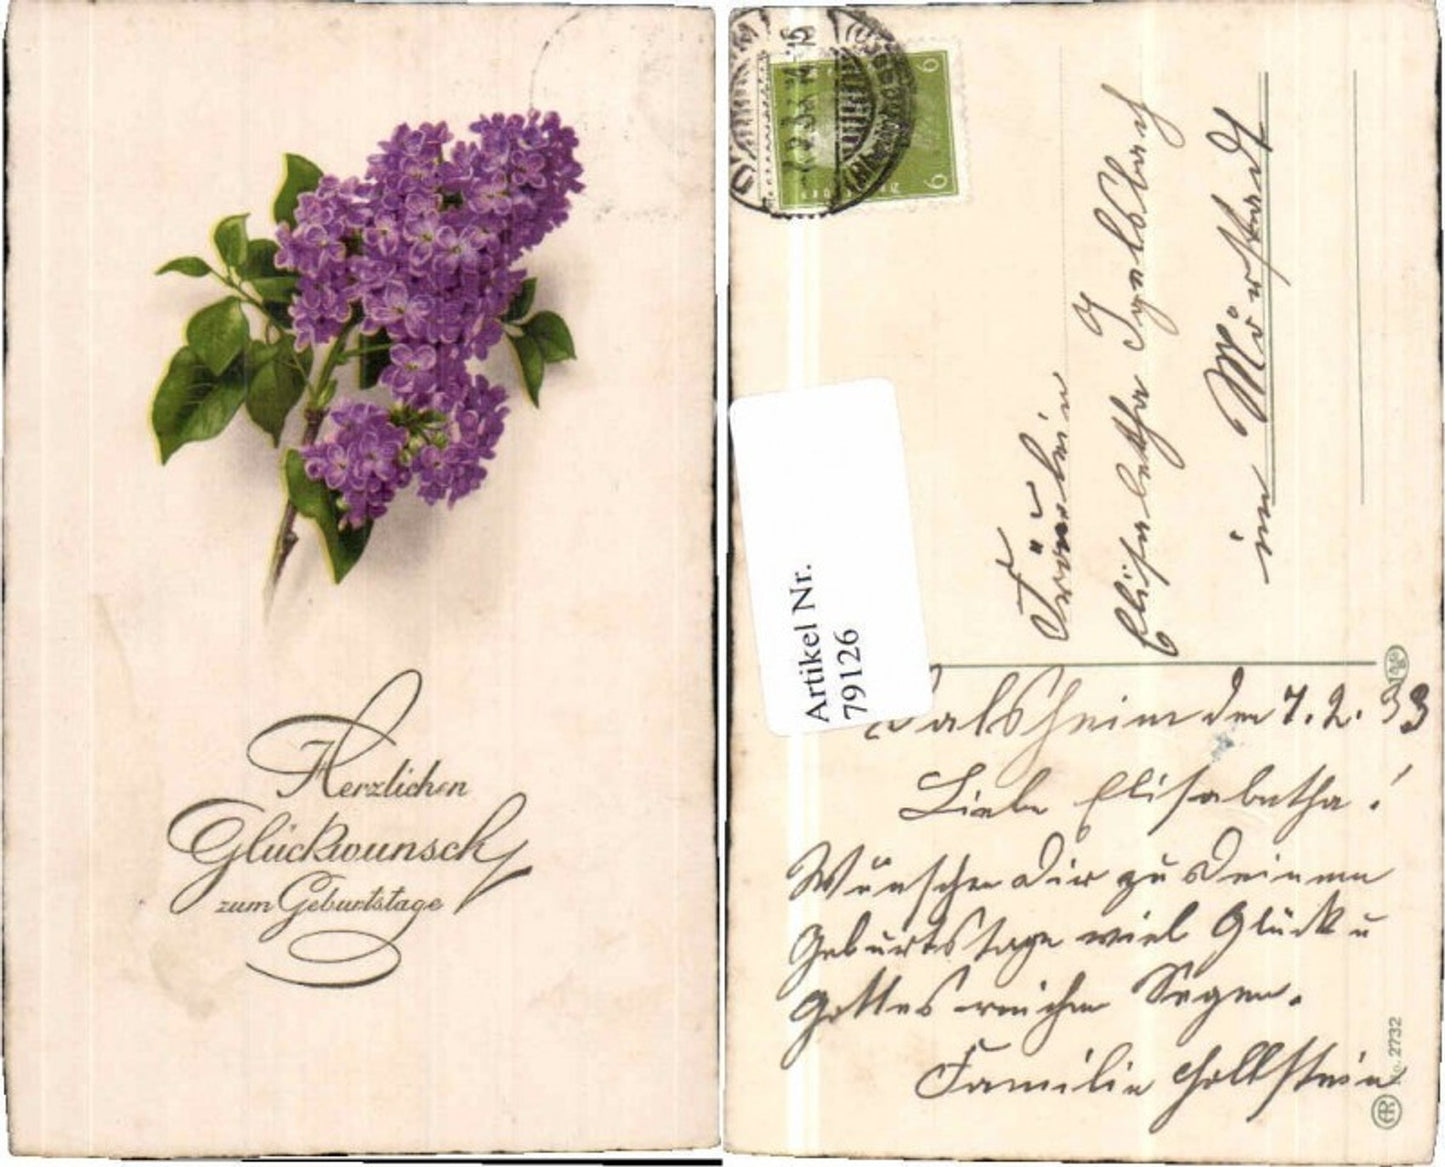 Herzlichen
Glückwunsch
zum Geburtstage
6
6
Artikel Nr.
79126
Fräulein
Elisabetha
in Mörstadt
den 7.2.33
Liebe Elisabetha!
Wünschen Dir zu Deinem
Geburtstage viel Glück u
Gottes reichen Segen.
Familie Hollstein
No. 2732